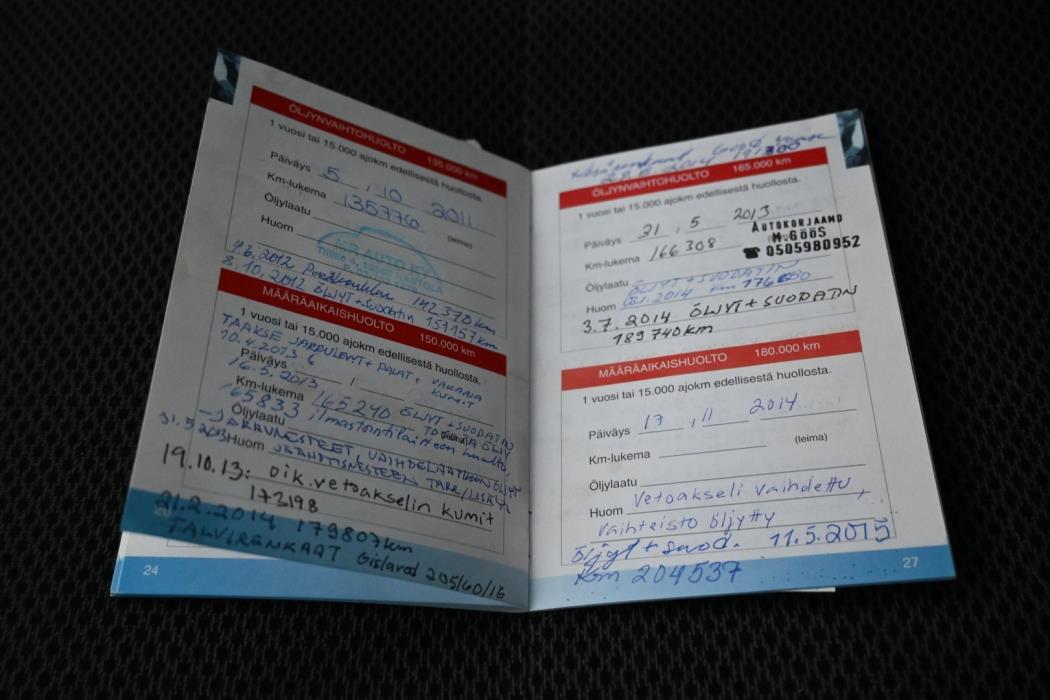 ÖLJYNVAIHTOHUOLTO 135.000 km
1 vuosi tai 15.000 ajokm edellisestä huollosta.
Päiväys 5 , 10 2011
Km-lukema 135776
Öljylaatu (leima)
Huom
NR AUTO KY
1.6.2012 142370km
8.10.2012 ÖLJYT+suodatin 151157km
MÄÄRÄAIKAISHUOLTO 150.000 km
1 vuosi tai 15.000 ajokm edellisestä huollosta.
TAAKSE JARRULEVYT + PALAT + VAKAAJA
10.4.2013 KUMIT
Päiväys /
16.5.2013
Km-lukema 165240 ÖLJYT + SUODATIN
Öljylaatu
165833 ilmastointilaitteen huolto,
31.5.2013 JARRUNESTEET, VAIHDELAATIKON ÖLJYT
Huom JÄÄHDYTISNESTEEN TARK/LISÄYS
19.10.13: oik.vetoakselin kumit
173198
21.2.2014 179807km
TALVIRENKAAT Gislaved 205/60/16
24
191300
ÖLJYNVAIHTOHUOLTO 165.000 km
1 vuosi tai 15.000 ajokm edellisestä huollosta.
Päiväys 21 , 5 2013
AUTOKORJAAMO
M.GÖÖS
☎ 0505980952
Km-lukema 166308
Öljylaatu ÖLJYT + SUODATIN
Huom 2014 km
3.7.2014 ÖLJYT + SUODATIN
189740km
MÄÄRÄAIKAISHUOLTO 180.000 km
1 vuosi tai 15.000 ajokm edellisestä huollosta.
Päiväys 17 , 11 2014
Km-lukema (leima)
Öljylaatu
Huom Vetoakseli vaihdettu,
vaihteisto öljytty
Öljyt + suod. 11.5.2015
Km 204537
27